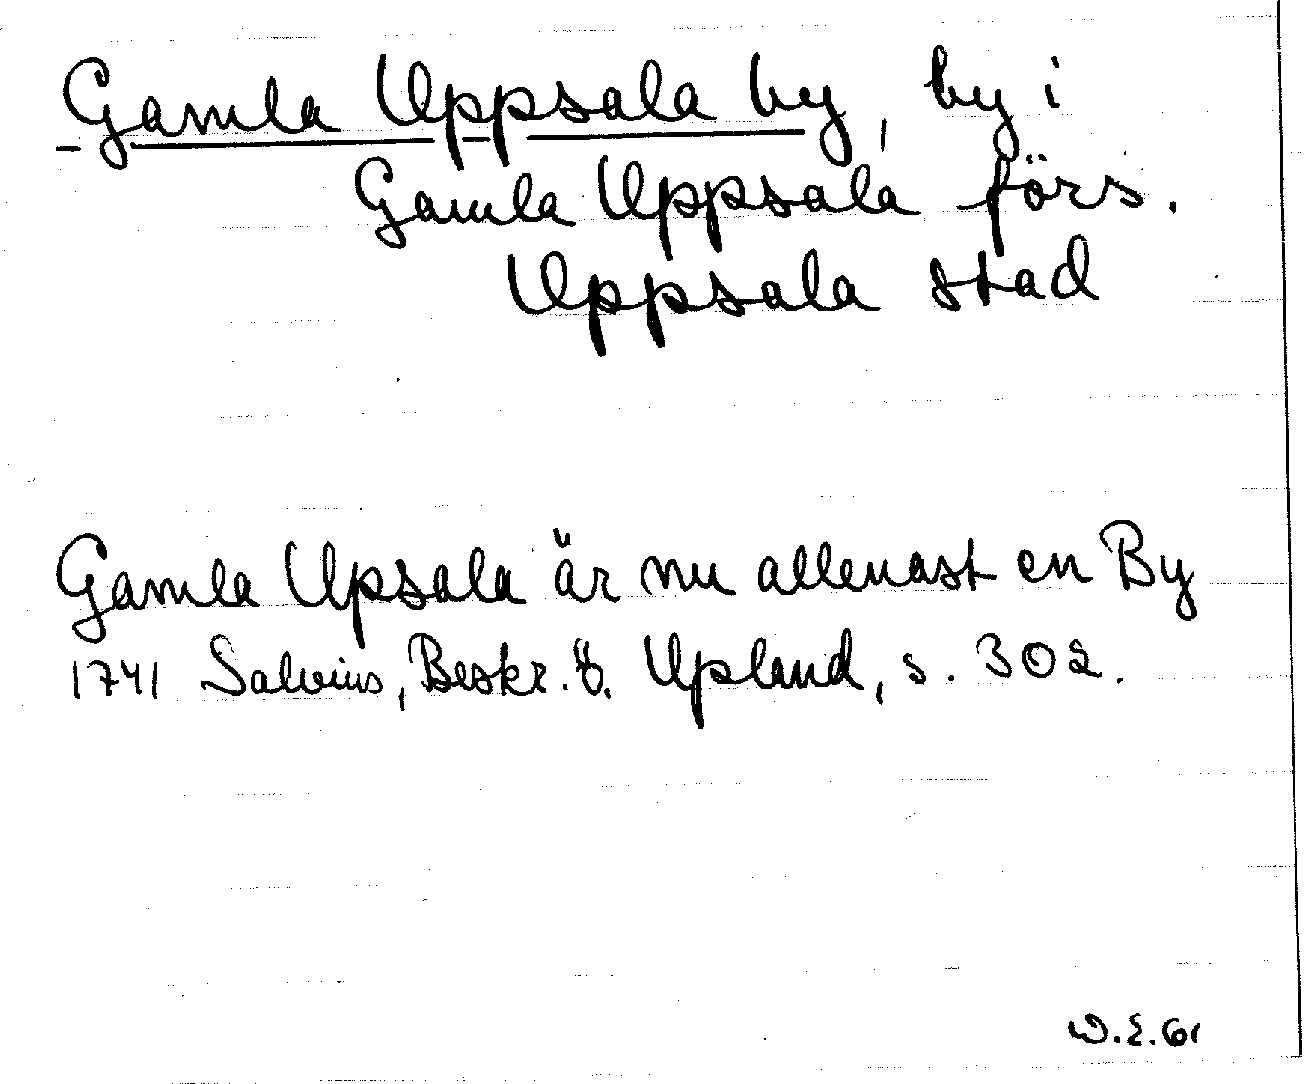 Gamla Uppsala by, by i
Gamla Uppsala förs.
Uppsala stad
Gamla Upsala är nu allenast en By
1741 Salvius, Beskr. ö. Upland, s. 302.
W.E. 61